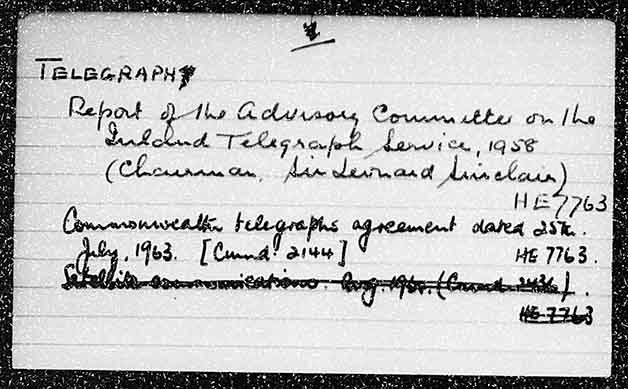 TELEGRAPHY
Report of the Advisory Committee on the
Inland Telegraph Service, 1958
(Chairman, Sir Leonard Sinclair)
HE7763
Commonwealth telegraphs agreement dated 25th.
July, 1963. [Cmnd. 2144]
HE 7763.
Satellite communications. Aug. (Cmnd. 2436).
HE 7763